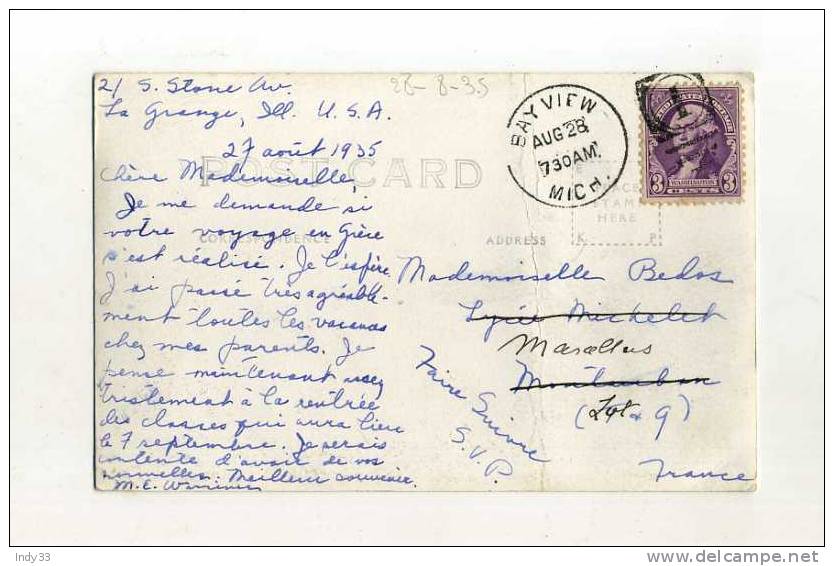 21 S. Stone Av.
La Grange, Ill. U.S.A.
28-8-35
27 août 1935
POST CARD
Chère Mademoiselle,
Je me demande si
votre voyage en Grèce
CORRESPONDENCE
s'est réalisé. Je l'espère.
J'ai passé très agréable-
ment toutes les vacances
chez mes parents. Je
pense maintenant assez
tristement à la rentrée
des classes qui aura lieu
le 7 septembre. Je serais
contente d'avoir de vos
nouvelles. Meilleur souvenir.
M. E.
BAY VIEW
AUG 28
7 30 AM
MICH.
UNITED STATES POSTAGE
3 WASHINGTON 3
CENTS
PLACE
STAMP
HERE
K P
ADDRESS
Mademoiselle Bedos
Lycée Michelet
Marcellus
Montauban
(Lot & G)
France
Faire Suivre
S.V.P.
Indy33
delcampe.net